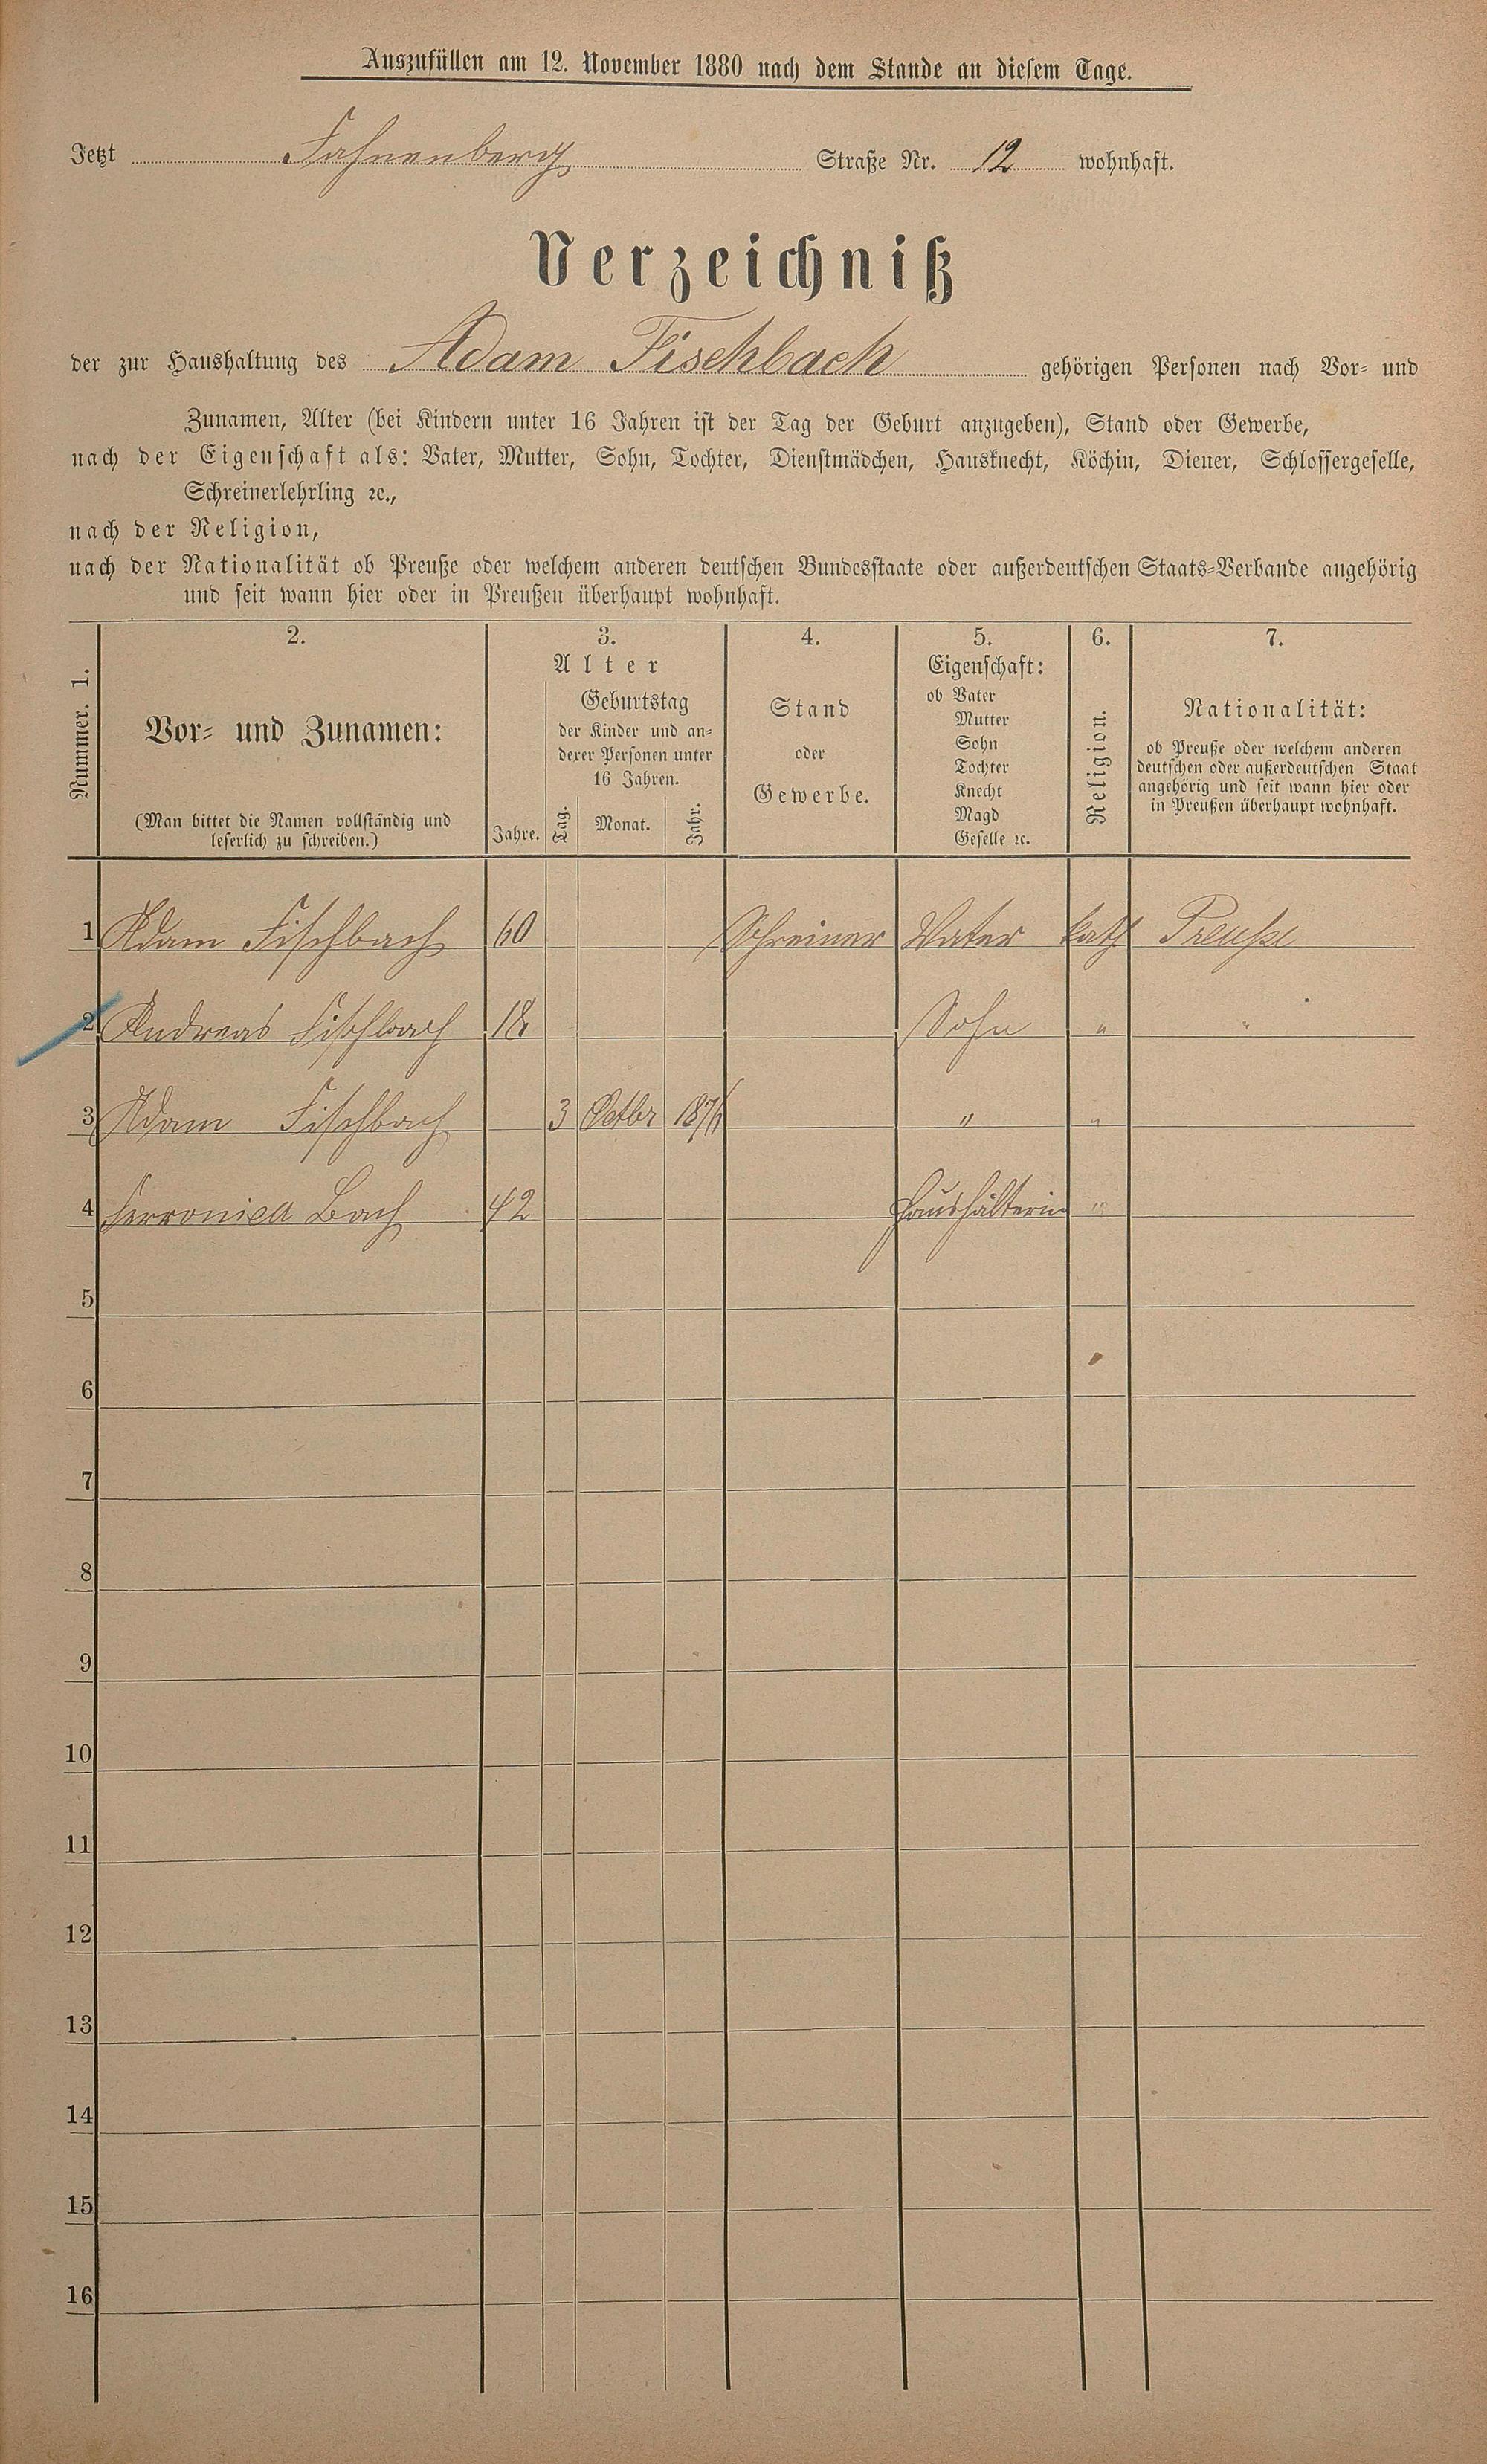 Auszufüllen am 12. November 1880 nach dem Stande an diesem Tage.
Jetzt Fahnenberg Straße Nr. 12 wohnhaft.
Verzeichniß
der zur Haushaltung des Adam Fischbach gehörigen Personen nach Vor- und
Zunamen, Alter (bei Kindern unter 16 Jahren ist der Tag der Geburt anzugeben), Stand oder Gewerbe,
nach der Eigenschaft als: Vater, Mutter, Sohn, Tochter, Dienstmädchen, Hausknecht, Köchin, Diener, Schlossergeselle,
Schreinerlehrling ꝛc.,
nach der Religion,
nach der Nationalität ob Preuße oder welchem anderen deutschen Bundesstaate oder außerdeutschen Staats-Verbande angehörig
und seit wann hier oder in Preußen überhaupt wohnhaft.
Nummer. 1.
2.
Vor- und Zunamen:
(Man bittet die Namen vollständig und
leserlich zu schreiben.)
3.
Alter
Jahre.
Geburtstag
der Kinder und an-
derer Personen unter
16 Jahren.
Tag. Monat. Jahr.
4.
Stand
oder
Gewerbe.
5.
Eigenschaft:
ob Vater
Mutter
Sohn
Tochter
Knecht
Magd
Geselle ꝛc.
6.
Religion.
7.
Nationalität:
ob Preuße oder welchem anderen
deutschen oder außerdeutschen Staat
angehörig und seit wann hier oder
in Preußen überhaupt wohnhaft.
1 Adam Fischbach 60 Schreiner Vater kath Preuße
2 Andreas Fischbach 18 Sohn " "
3 Adam Fischbach 3 Octbr " "
4 Ferronica Bach 42 Haushälterin "
5
6
7
8
9
10
11
12
13
14
15
16